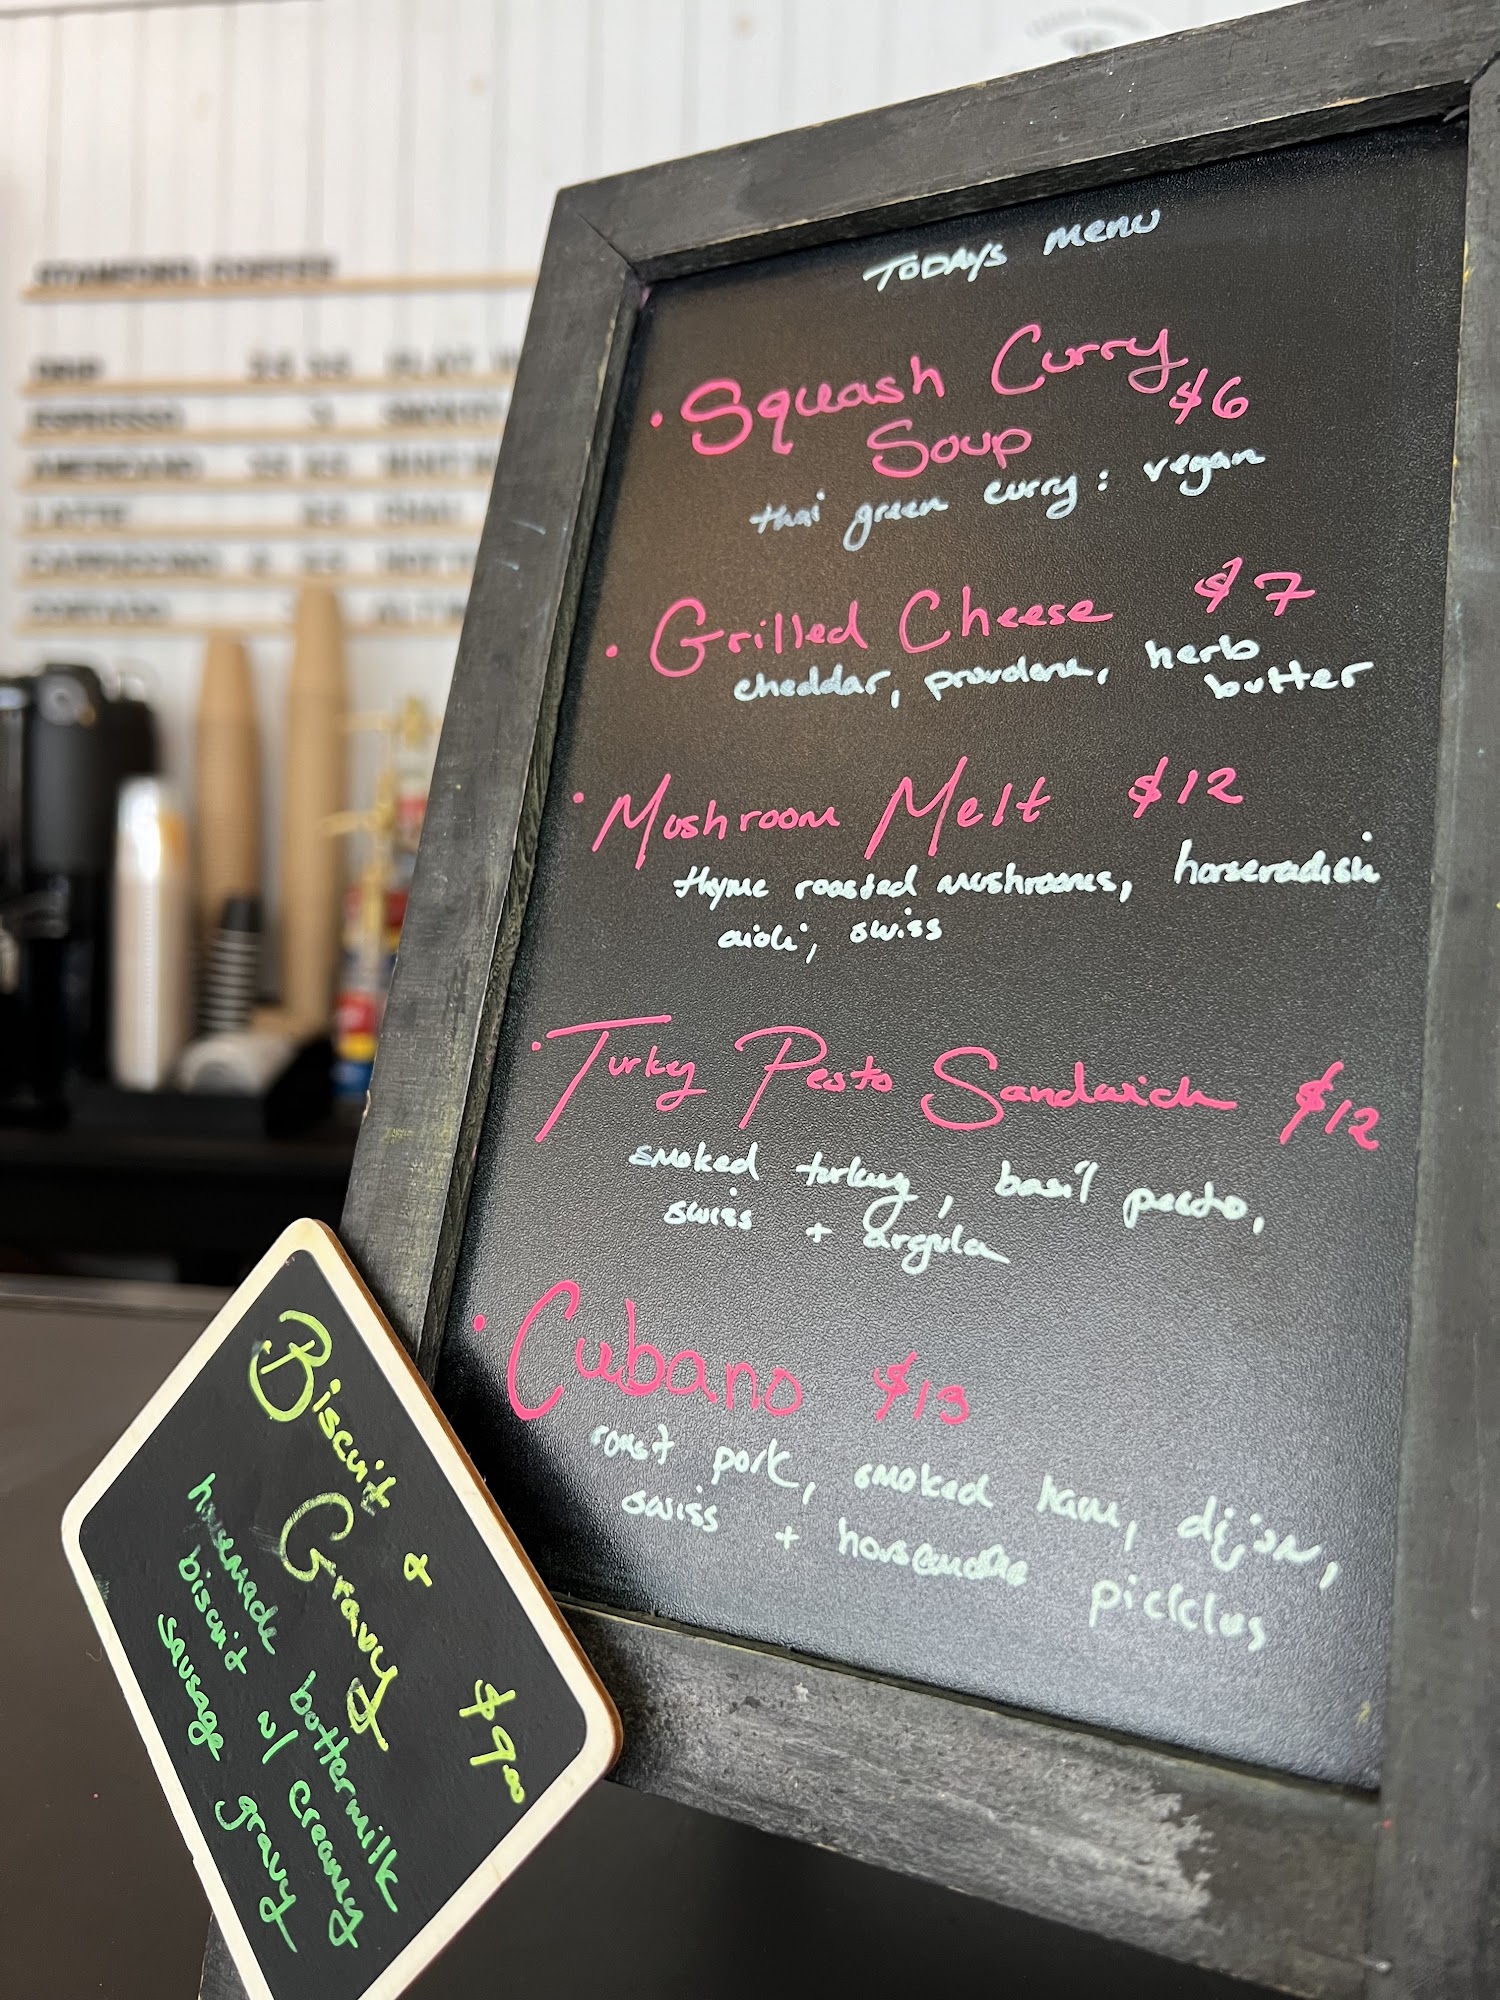 TODAYS menu
• Squash Curry
Soup $6
thai green curry: vegan
• Grilled Cheese $7
cheddar, provolone, herb
butter
• Mushroom Melt $12
thyme roasted mushrooms, horseradish
aioli, swiss
• Turkey Pesto Sandwich $12
smoked turkey, basil pesto,
swiss + argula
• Cubano $13
roast pork, smoked ham, dijon,
swiss + housemade pickles
Biscuit +
Gravy $9.00
homemade buttermilk
biscuit w/ creamy
sausage gravy
STAMFORD COFFEE
DRIP
ESPRESSO
AMERICANO
LATTE
CAPPUCCINO
CORTADO